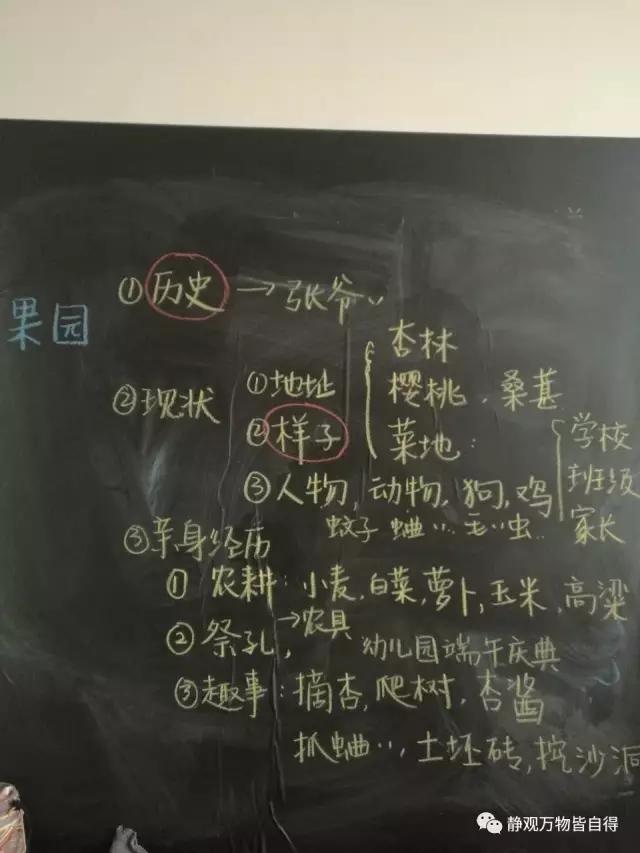 果园
①历史→张爷〃
②现状
①地址
②样子
杏林
樱桃、桑葚
菜地：
③人物，动物，狗，鸡
学校
班级
家长
蚊子 蛐〃… 毛〃虫…
③亲身经历
①农耕：小麦，白菜，萝卜，玉米，高粱
→农具
②祭孔， 幼儿园端午庆典
③趣事：摘杏，爬树，杏酱
抓蛐〃，土坯砖，挖沙洞
静观万物皆自得